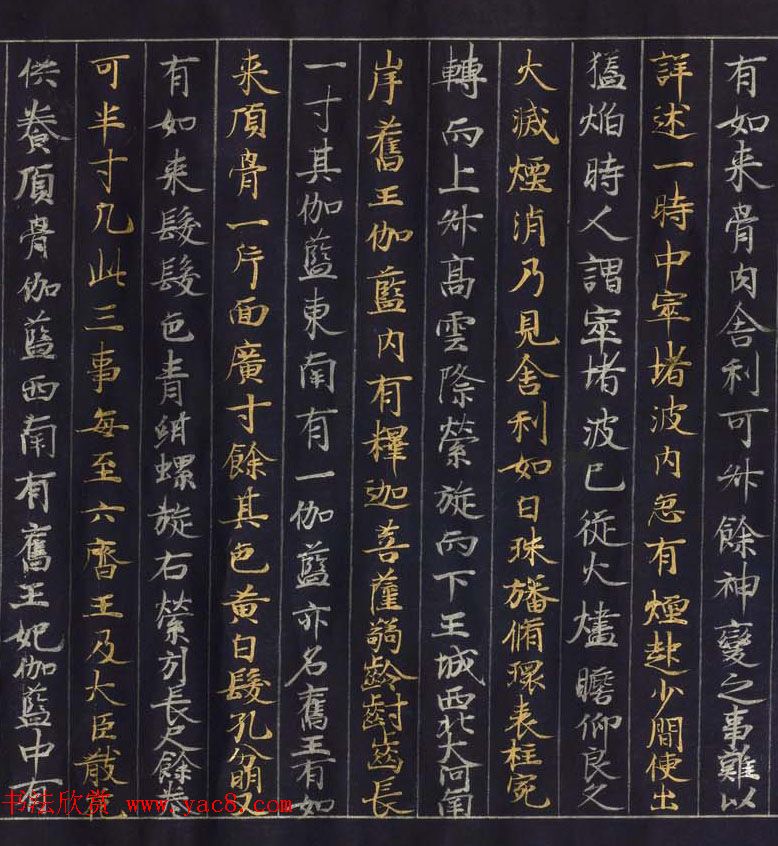 有如来骨肉舍利可升餘神變之事難以
詳述一時中窣堵波内忽有煙起少間便出
猛焰時人謂窣堵波已從火燼瞻仰良久
火滅煙消乃見舍利如白珠旛循環表柱宛
轉而上升高雲際縈旋而下王城西北大河南
岸舊王伽藍内有釋迦菩薩弱齡齔齒長
一寸其伽藍東南有一伽藍亦名舊王有如
来頂骨一片面廣寸餘其色黄白髮孔分明又
有如来髮髮色青紺螺旋右縈引長尺餘卷
可半寸凡此三事每至六齋王及大臣散花
供養頂骨伽藍西南有舊王妃伽藍中有
书法欣赏 www.yac8.com